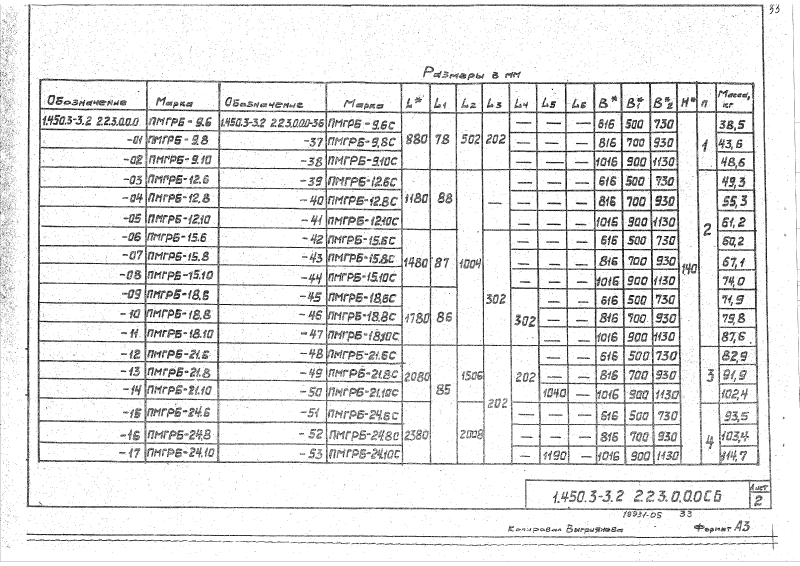 33
Размеры в мм
Обозначение Марка Обозначение Марка L* L1 L2 L3 L4 L5 L6 B* B*1 B*2 H* п Масса, кг
1.450.3-3.2 2.2.3.0.0.0 ПМГРБ-9.6 1.450.3-3.2 2.2.3.0.0.0-36 ПМГРБ-9.6С 880 78 502 202 — — — 616 500 730 140 1 38,5
-01 ПМГРБ-9.8 -37 ПМГРБ-9.8С — — — 816 700 930 43,6
-02 ПМГРБ-9.10 -38 ПМГРБ-9.10С — — — 1016 900 1130 48,6
-03 ПМГРБ-12.6 -39 ПМГРБ-12.6С 1180 88 1004 — — — — 616 500 730 2 49,3
-04 ПМГРБ-12.8 -40 ПМГРБ-12.8С — — — 816 700 930 55,3
-05 ПМГРБ-12.10 -41 ПМГРБ-12.10С — — — 1016 900 1130 61,2
-06 ПМГРБ-15.6 -42 ПМГРБ-15.6С 1480 87 302 — — — 616 500 730 60,2
-07 ПМГРБ-15.8 -43 ПМГРБ-15.8С — — — 816 700 930 67,1
-08 ПМГРБ-15.10 -44 ПМГРБ-15.10С — — — 1016 900 1130 74,0
-09 ПМГРБ-18.6 -45 ПМГРБ-18.6С 1780 86 302 — — 616 500 730 71,9
-10 ПМГРБ-18.8 -46 ПМГРБ-18.8С — — 816 700 930 79,8
-11 ПМГРБ-18.10 -47 ПМГРБ-18.10С — — 1016 900 1130 87,6
-12 ПМГРБ-21.6 -48 ПМГРБ-21.6С 2080 85 1506 202 202 — — 616 500 730 3 82,9
-13 ПМГРБ-21.8 -49 ПМГРБ-21.8С — — 816 700 930 91,9
-14 ПМГРБ-21.10 -50 ПМГРБ-21.10С 1040 — 1016 900 1130 102,4
-15 ПМГРБ-24.6 -51 ПМГРБ-24.6С 2380 2008 — — — 616 500 730 4 93,5
-16 ПМГРБ-24.8 -52 ПМГРБ-24.8С — — — 816 700 930 103,4
-17 ПМГРБ-24.10 -53 ПМГРБ-24.10С — 1190 — 1016 900 1130 114,7
1.450.3-3.2 2.2.3.0.0.0СБ
Лист
2
19931-05 33
Копировал Формат А3